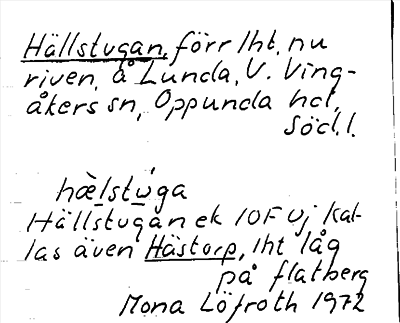 Hällstugan, förr lht, nu
riven, å Lunda, V. Ving-
åkers sn, Oppunda hd,
Södl.
hæ̀lstu̇́ga
Hällstugan ek 10F 0j kal-
las även Hästorp, lht låg
på flatberg
Mona Löfroth 1972